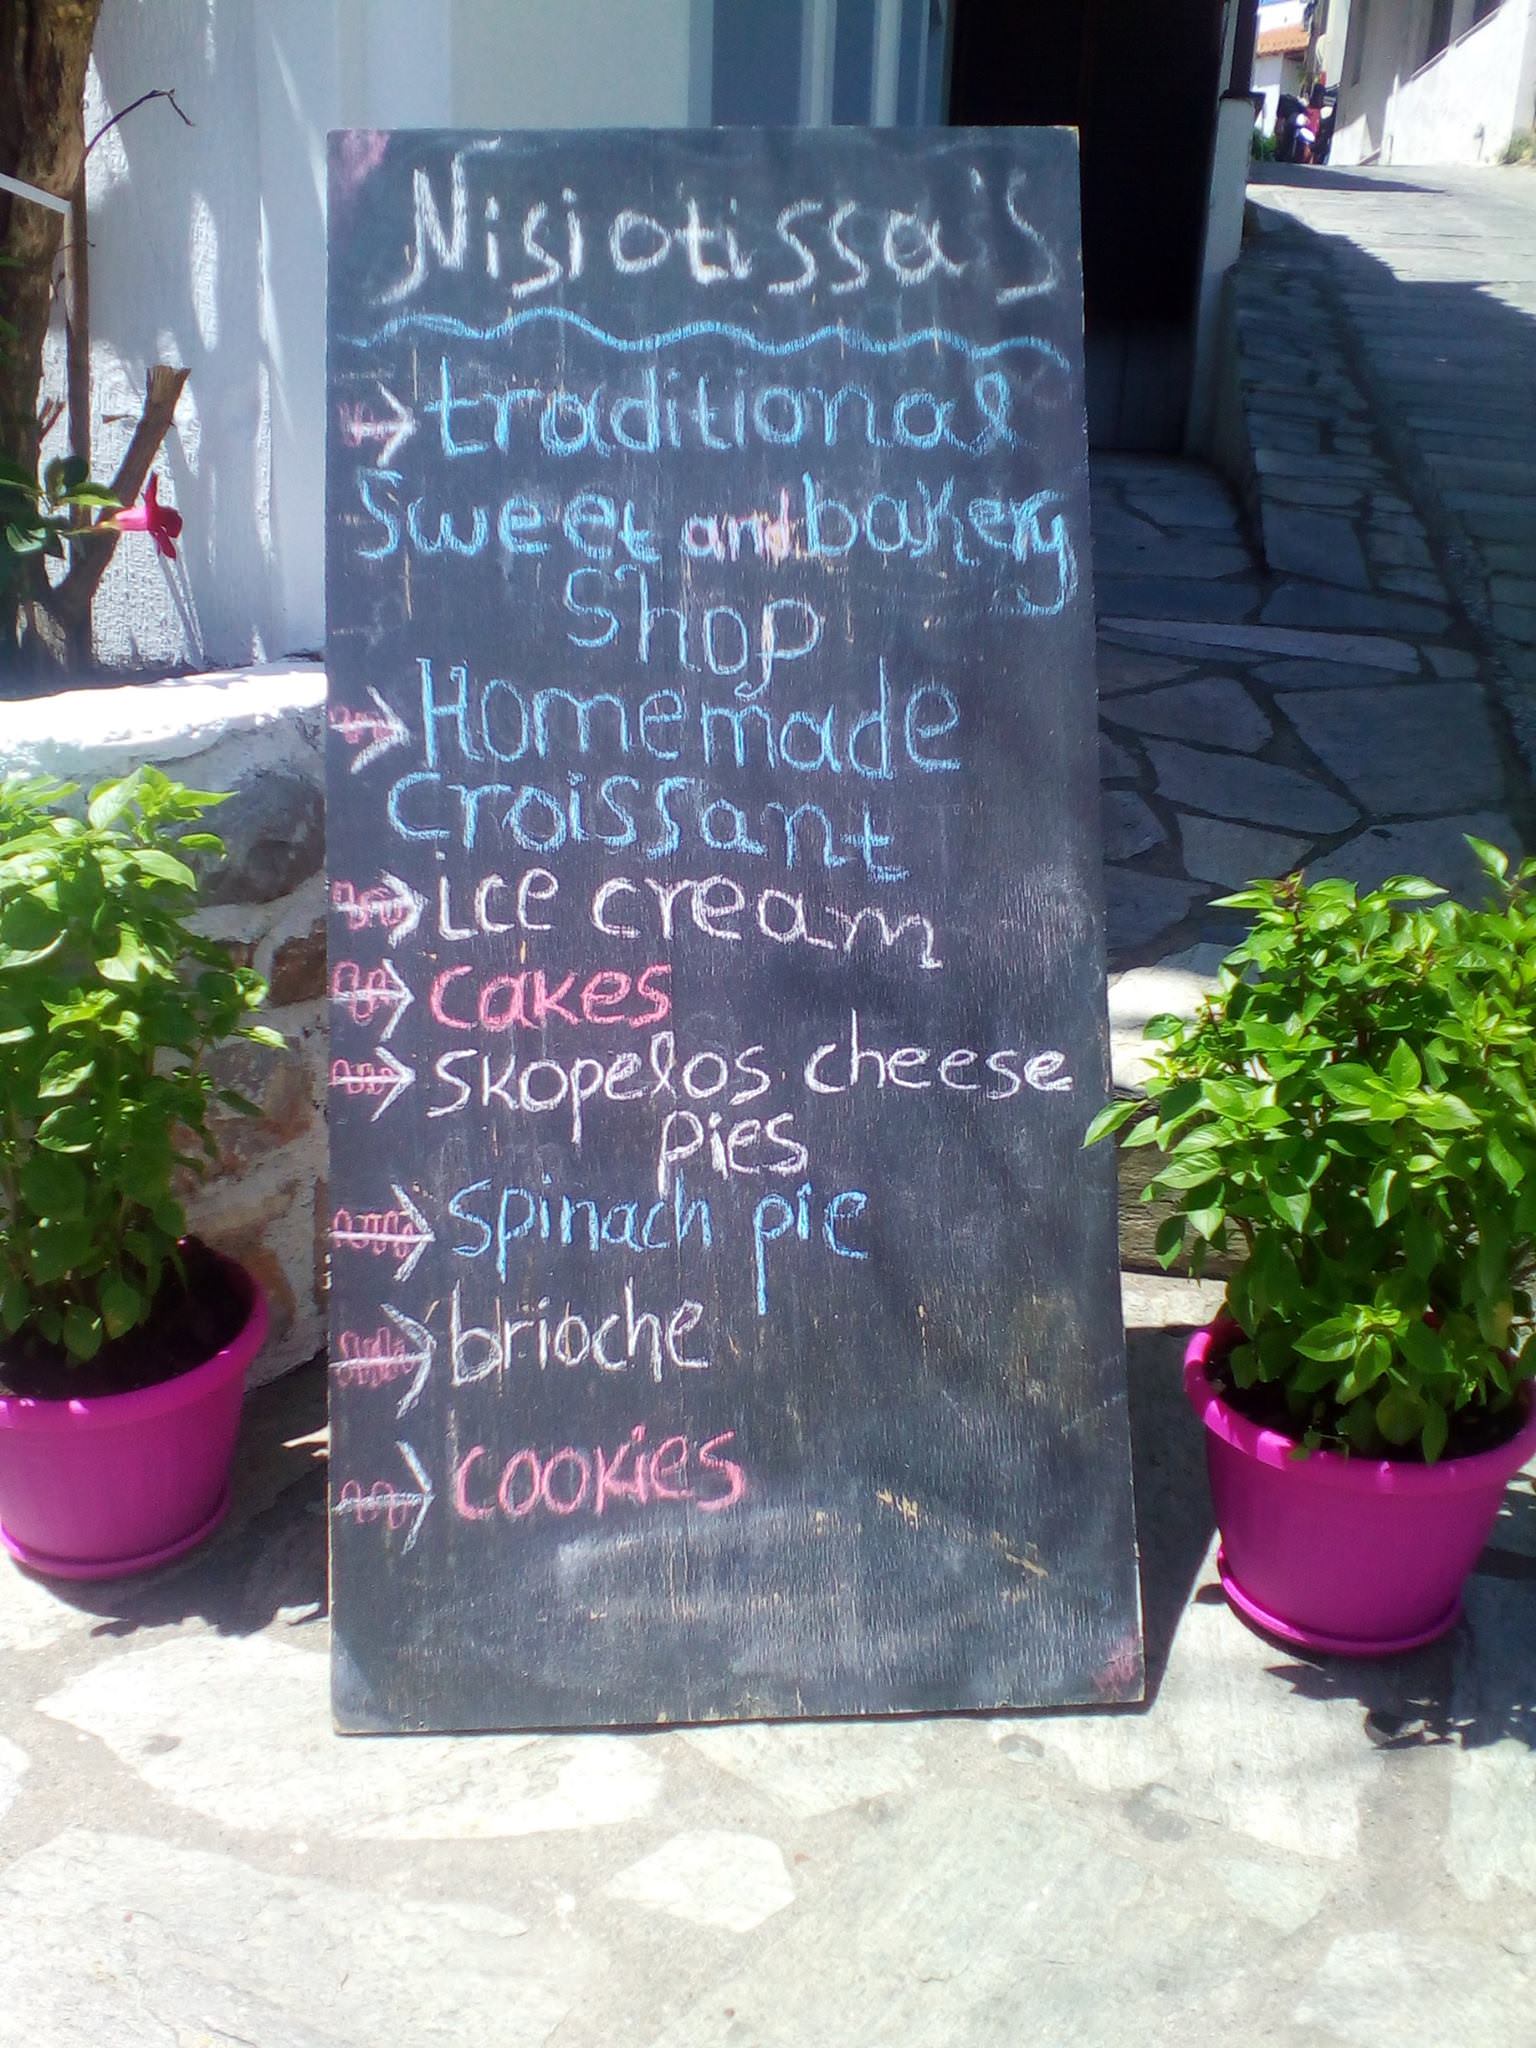 Nisiotissa's
traditional
Sweet and bakery
Shop
Homemade
croissant
ice cream
cakes
skopelos cheese
pies
spinach pie
brioche
cookies